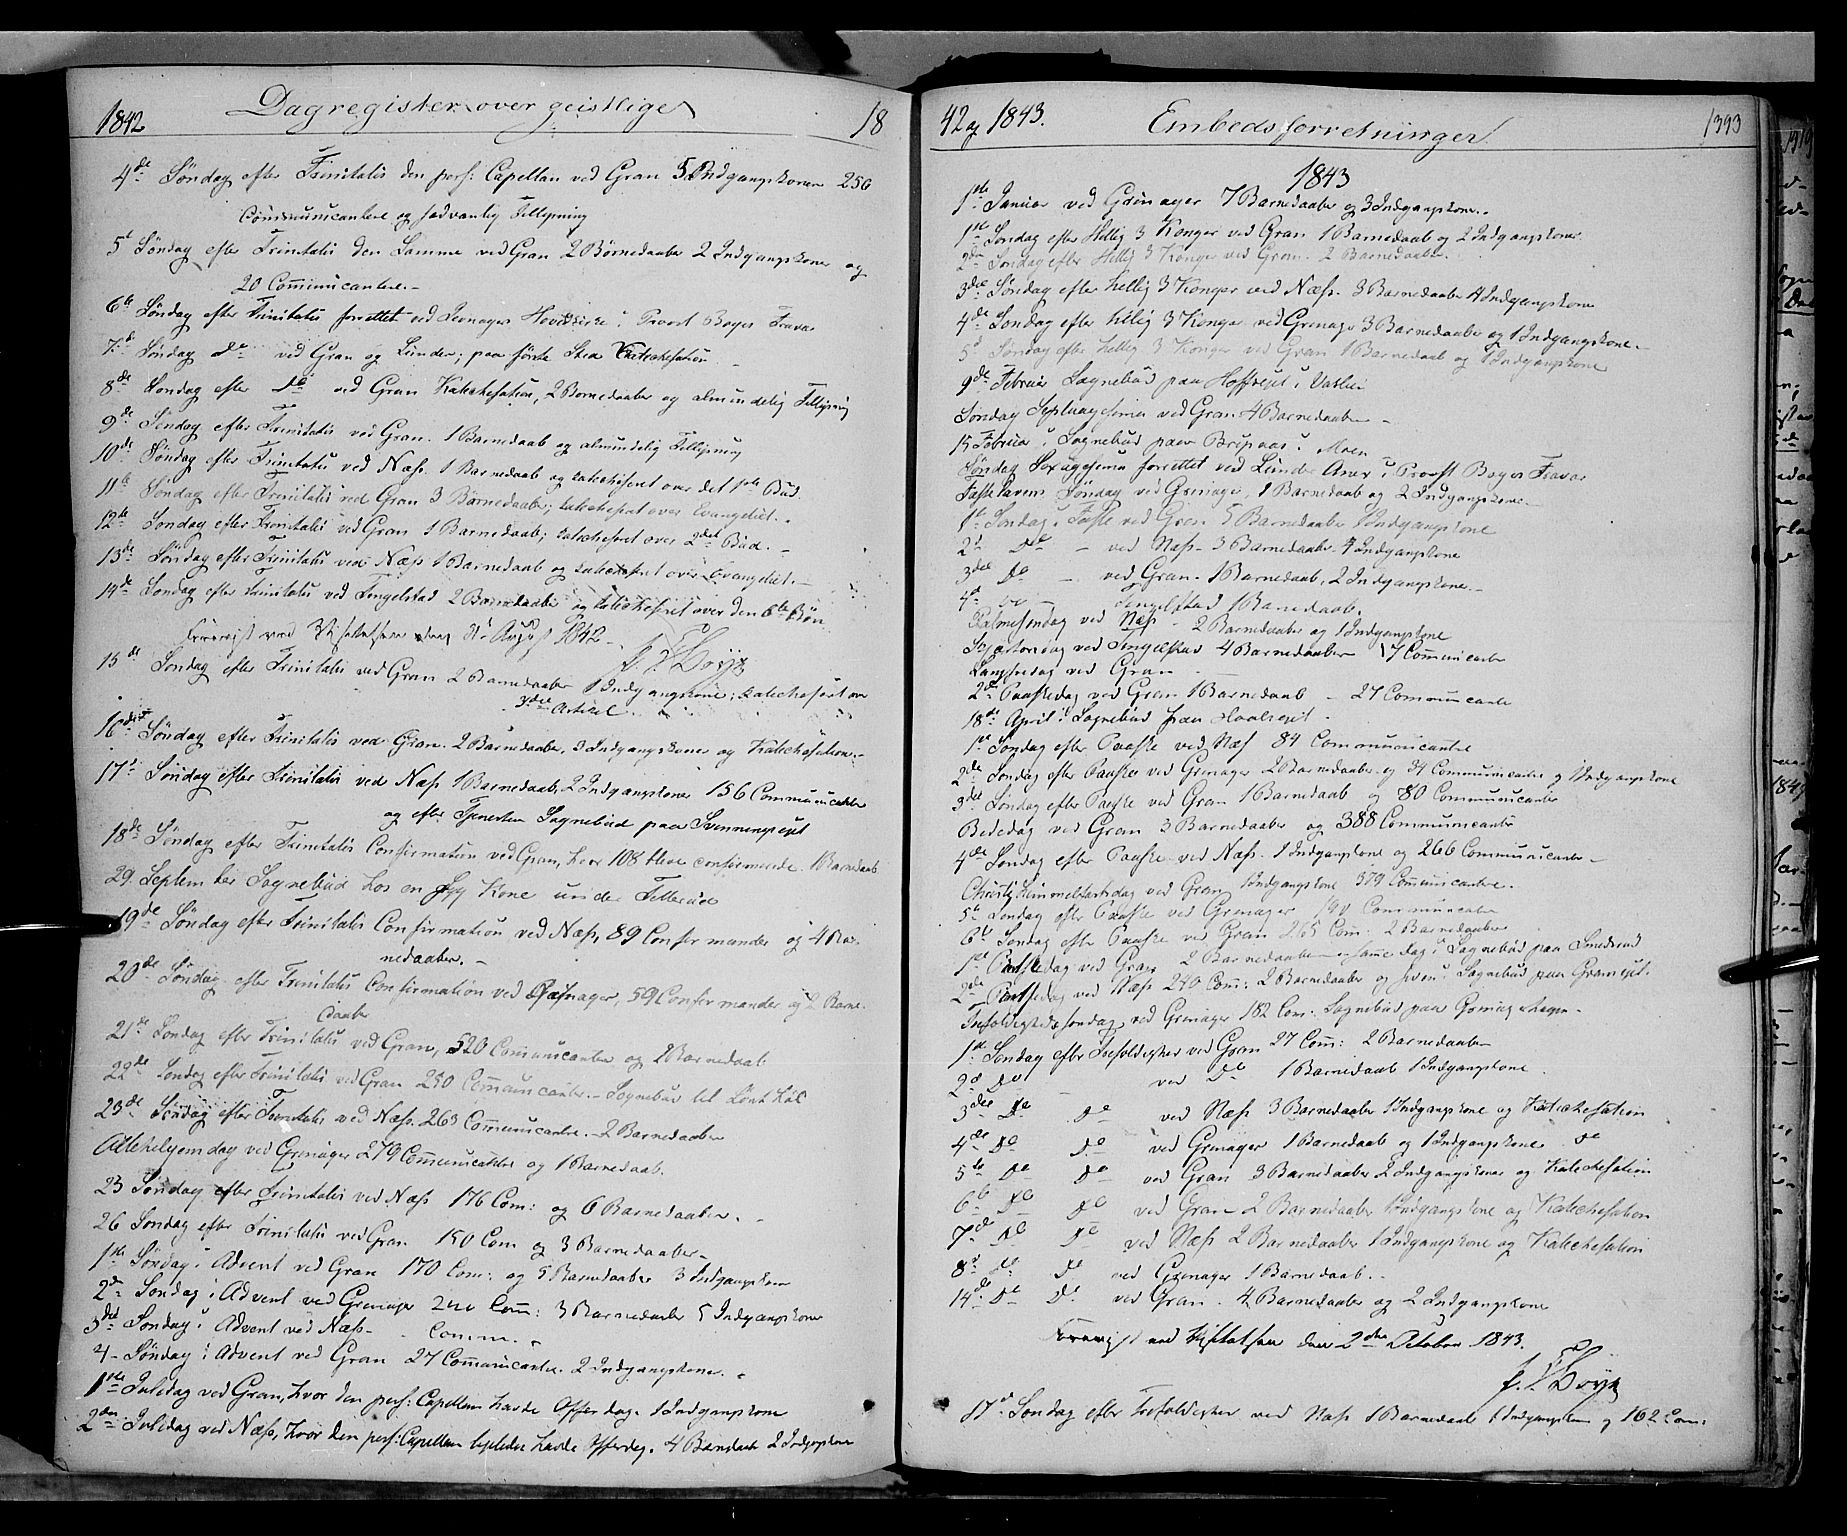 1842 Dagregister over geistlige 18
4de Søndag efter Trinitatis den pers: Capellan ved Gran 5 Indgangskoner 256
Communicantere og sædvanlig Tillysning
5t Søndag efter Trinitatis den Samme ved Gran 2 Børnedaaber 2 Indgangskoner og
20 Communicantere.-
6te Søndag efter Trinitatis forrettet ved Hovedkirke i Provst
7de Søndag De ved Gran og Lunder; paa første Sted Catechesation
8de Søndag efter De ved Gran Katechesation, 2 Børnedaaber og almindelig Tillysning
9de Søndag efter Trinitatis ved Gran. 1 Barnedaab og almindelig Tillysning
10de Søndag efter Trinitatis ved Næss. 1 Barnedaab og katechiseret over det 1ste Bud.
11te Søndag efter Trinitatis ved Gran 3 Børnedaaber; katechiseret over Evangeliet.
12te Søndag efter Trinitatis ved Gran 1 Barnedaab; katechiseret over 2det Bud.-
13de Søndag efter Trinitatis ved Næss 1 Barnedaab og katechiseret over Evangeliet.-
14de Søndag efter Trinitatis ved Tingelstad 2 Barnedaaber og katechiseret over den 6te Bøn
Foreviist ved Visitatsen den August 1842.
15de Søndag efter Trinitatis ved Gran 2 Barnedaaber 1 Indgangskone; katechiseret over
3die Artikel
16de Søndag efter Trinitatis ved Gran. 2 Barnedaaber, 3 Indgangskoner og Katechesation.-
17de Søndag efter Trinitatis ved Næss 1 Barnedaab, 2 Indgangskoner 156 Communicanter
og efter Tjenesten Sognebud paa
18de Søndag efter Trinitatis Confirmation ved Gran, hvor 108 bleve confirmerede. 1 Barnedaab
29 September Sognebud hos en Syg Kone under
19de Søndag efter Trinitatis Confirmation ved Næss, 89 Confirmander og 4 Bar-
nedaaber.-
20de Søndag efter Trinitatis Confirmation ved 59 Confirmander og 2 Barne-
daaber
21de Søndag efter Trinitatis ved Gran, 520 Communicanter og 1 Barnedaab
22de Søndag efter Trinitatis ved Gran 250 Communicanter.- Sognebud til
23de Søndag efter Trinitatis ved Næss. 263 Communicantere.- 2 Barnedaaber
Allehelgensdag ved Grinager 279 Communicanter og 1 Barnedaab.
25 Søndag efter Trinitatis ved Næss 176 Com: og 6 Barnedaaber.
26 Søndag efter Trinitatis ved Gran 150 Com og 3 Barnedaaber-
1ste Søndag i Advent ved Gran 170 Com: og 5 Barnedaaber 3 Indgangskon
2de Søndag i Advent ved Grinager Com: 3 Barnedaaber 5 Indgangskoner
3die Søndag i Advent ved Næss- Comm.
4- Søndag i Advent ved Gran 27 Communicanter. 2 Indgangskoner.
1ste Juledag ved Gran, hvor den pers: Capellan havde Offerdag. 1 Indgangskone
2den Juledag ved Næss, hvor den pers: Capellan ligeledes havde Offerdag. 4 Barnedaab 2 Indgangskone
42 og 1843. Embedsforretninger 1393
1843
1ste Januar ved Grinager 7 Barnedaaber og 3 Indgangskone.
1ste Søndag efter Hellig 3 Konger ved Gran 1 Barnedaab og 2 Indgangskoner
2den Søndag efter Hellig 3 Konger ved Gran. 2 Barnedaaber.
3die Søndag efter hellig 3 Konger ved Næss. 3 Barnedaaber 4 Indgangskone
4de Søndag efter hellig 3 Konger ved Grinager 3 Barnedaaber og 1 Indgangskone.-
5t Søndag efter hellig 3 Konger ved Gran 1 Barnedaab og 1 Indgangskone
9de Februar Sognebud paa i
Søndag Septuagesima ved Gran 4 Barnedaaber-
15 Februar i Sognebud paa i Moen
Søndag Sexagesima forrettet ved Lunder Anex i Provst
Fastelavens Søndag ved Grinager, 1 Barnedaab og 2 Indgangskone
1ste Søndag i Faste ved Gran 5 Barnedaaber 1 Indgangskone
2d De - ved Næss- 3 Barnedaaber 4 Indgangskone
3die De - ved Gran- 1 Barnedaab, 2 Indgangskone.-
4de De Tingelstad 1 Barnedaab.
Palmesøndag ved Næss- 2 Barnedaaber og 1 Indgangskone
Skjærtorsdag ved Tingelstad 4 Barnedaaber 17 Communicanter
Langfredag ved Gran -
2den Paaskedag ved Gran 1 Barnedaab - 27 Communicanter
18de April i Sognebud paa
1ste Søndag efter Paaske ved Næss 84 Communicantre
2de Søndag efter Paaske ved Grinager 2 Barnedaaber og 34 Communicanter og 1 Indgangskone
3die Søndag efter Paaske ved Gran 1 Barnedaab og 80 Communicanter
Bededag ved Gran 3 Barnedaaber og 388 Communicanter
4de Søndag efter Paaske ved Næss. 1 Indgangskone og 266 Communicanter-
Christi Himmelfartsdag ved Gran 1 Indgangskone 379 Communicantere.
5te Søndag efter Paaske ved Grinager 190 Communicanter
6te Søndag efter Paaske ved Gran 265 Com: 2 Barnedaaber
1ste Pintsedag ved Gran 2 Barnedaaber- samme dag i Sognebud paa
2de Pintsedag ved Næss 240 Com: 2 Barnedaaber og i Sognebud paa
Trefoldighedssøndag ved Grinager 182 Com: Sognebud paa
1ste Søndag efter Trefoldighed ved Gran 27 Com: 2 Barnedaaber
2d De ved De 1 Barnedaab 1 Indgangskone.
3die De De ved Næss 3 Barnedaaber 1 Indgangskone og Katechesation
4de De De ved Grinager 1 Barnedaab og 1 Indgangskone. De
5te De De ved Gran 3 Barnedaaber 2 Indgangskoner og Katechesation
6te De De ved Gran 2 Barnedaaber 1 Indgangskone og Katechesation
7de De De ved Næss 2 Barnedaaber 1 Indgangskone og Katechesation
8de De De ved Grinager 1 Barnedaab.-
14de De De ved Gran. 4 Barnedaaber og 2 Indgangskone
Foreviist ved Visitatsen den 2den October 1843.
17d Søndag efter Trefoldighed ved Næss 1 Barnedaab 1 Indgangskone og 162 Com: